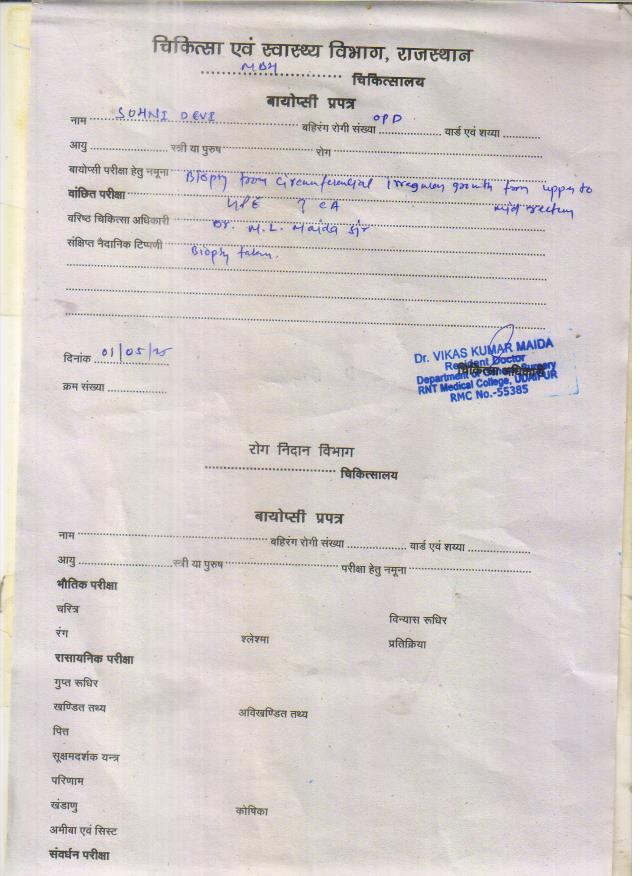 चिकित्सा एवं स्वास्थ्य विभाग, राजस्थान
MBH चिकित्सालय
बायोप्सी प्रपत्र
नाम SOHNI DEVI बहिरंग रोगी संख्या OPD वार्ड एवं शय्या
आयु स्त्री या पुरुष रोग
बायोप्सी परीक्षा हेतु नमूना Biopsy from circumferential irregular growth from upper to mid rectum
वांछित परीक्षा HPE ? CA
वरिष्ठ चिकित्सा अधिकारी Dr. M.L. Maida Sir
संक्षिप्त नैदानिक टिप्पणी Biopsy taken.
दिनांक 01/05/25
Dr. VIKAS KUMAR MAIDA
Resident Doctor
चिकित्सा अधिकारी
Department of General Surgery
RNT Medical College, UDAIPUR
RMC No.-55385
क्रम संख्या
रोग निदान विभाग
चिकित्सालय
बायोप्सी प्रपत्र
नाम बहिरंग रोगी संख्या वार्ड एवं शय्या
आयु स्त्री या पुरुष परीक्षा हेतु नमूना
भौतिक परीक्षा
चरित्र विन्यास रूधिर
रंग श्लेश्मा प्रतिक्रिया
रासायनिक परीक्षा
गुप्त रूधिर
खण्डित तथ्य अविखण्डित तथ्य
पित्त
सूक्षमदर्शक यन्त्र
परिणाम
खंडाणु कोषिका
अमीबा एवं सिस्ट
संवर्धन परीक्षा